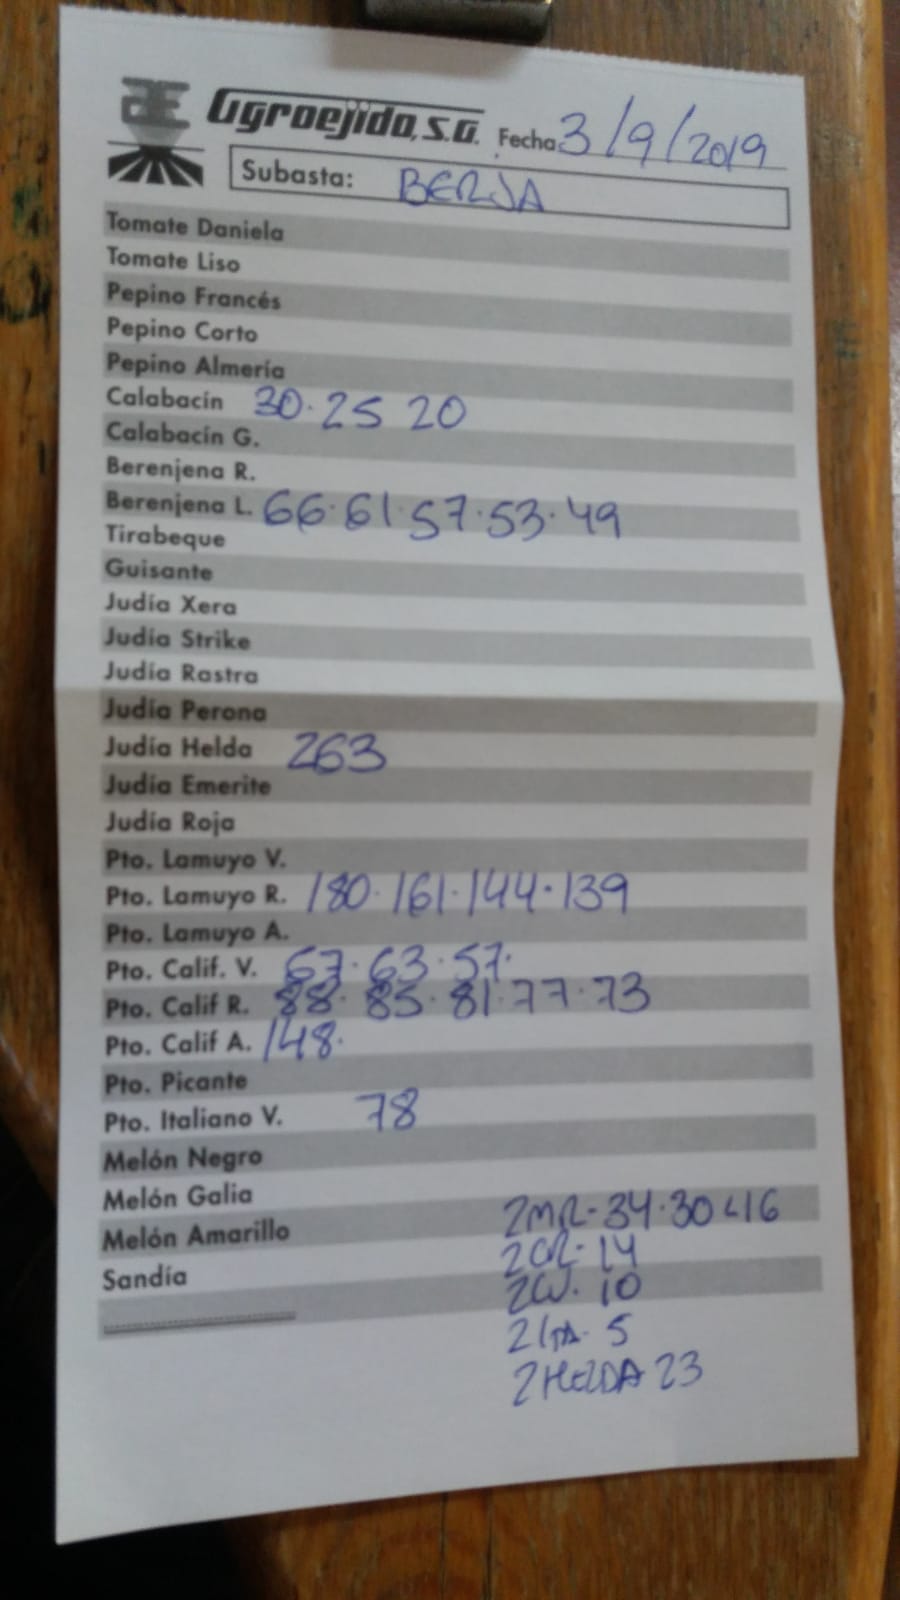 Agroejido, S.A. Fecha 3/9/2019
Subasta: BERJA
Tomate Daniela
Tomate Liso
Pepino Francés
Pepino Corto
Pepino Almería
Calabacín 30. 25 20
Calabacín G.
Berenjena R.
Berenjena L. 66. 61. 57. 53. 49
Tirabeque
Guisante
Judía Xera
Judía Strike
Judía Rastra
Judía Perona
Judía Helda 263
Judía Emerite
Judía Roja
Pto. Lamuyo V.
Pto. Lamuyo R. 180. 161. 144. 139
Pto. Lamuyo A.
Pto. Calif. V. 67. 63. 57.
Pto. Calif R. 88. 85. 81. 77. 73
Pto. Calif A. 148.
Pto. Picante
Pto. Italiano V. 78
Melón Negro
Melón Galia
Melón Amarillo 2MR-34.30 L16
2CR. 14
Sandía
2CV. 10
2ITA. 5
2HELDA 23